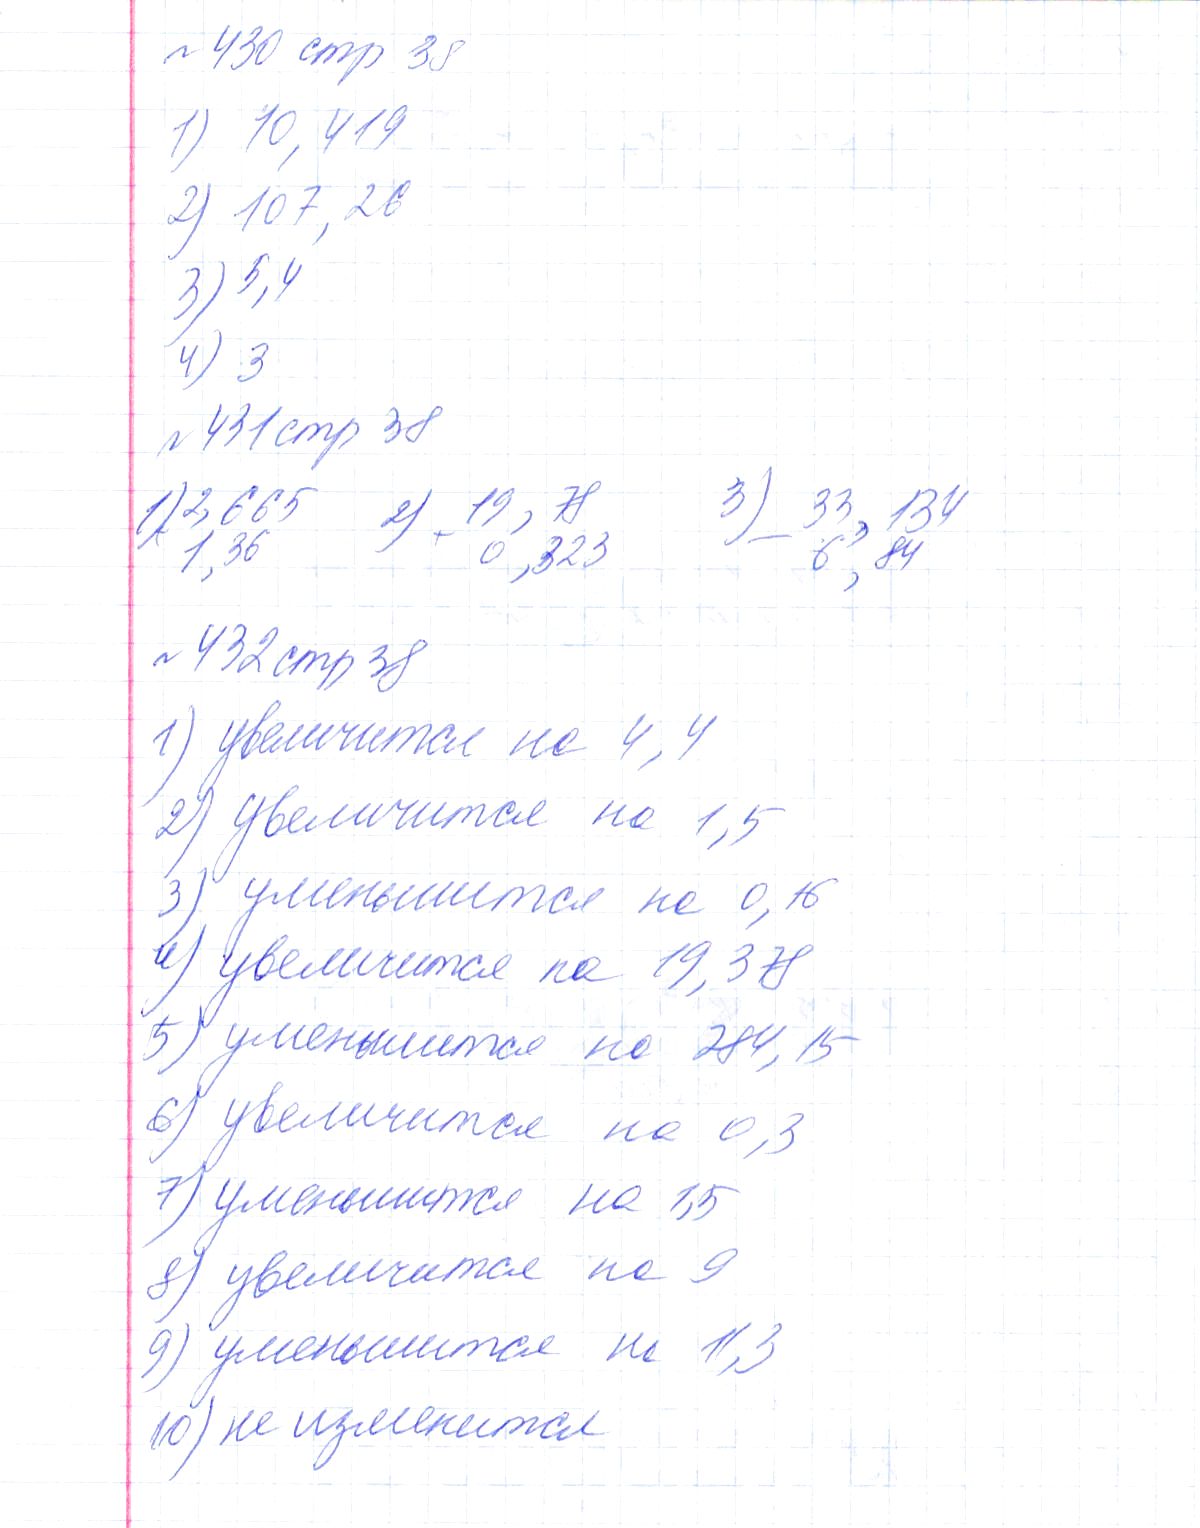 №430 стр 38
1) 10,419
2) 107,26
3) 5,4
4) 3
№431 стр 38
1) 2,665 2) 19,78 3) – 33,134
+ 1,36 + 0,323 6,84
№432 стр 38
1) увеличится на 4,4
2) увеличится на 1,5
3) уменьшится на 0,16
4) увеличится на 19,378
5) уменьшится на 284,15
6) увеличится на 0,3
7) уменьшится на 1,5
8) увеличится на 9
9) уменьшится на 11,3
10) не изменится